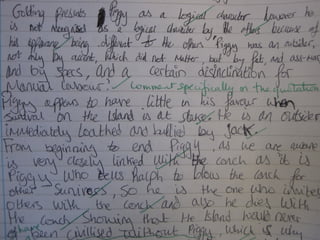 Golding presents Piggy as a logical character however he
is not recognised as a logical character by the others because of
his appearance being different to the others, Piggy was an outsider,
not only by accent, which did not matter, but by fat, and ass-mar
and by specs, and a certain disinclination for
Manual labour. comment specifically on the quotation
Piggy appears to have little in his favour when
Survival on the Island is at stake. He is an outsider
immediately loathed and bullied by Jack.
From beginning to end Piggy, as we are aware
is very closely linked with the conch as it is
Piggy who tells Ralph to blow the conch for
other Survivors, So he is the one who invites
others with the conch and also he dies with
The Conch showing that the Island would never
have been civilised without Piggy, which is why